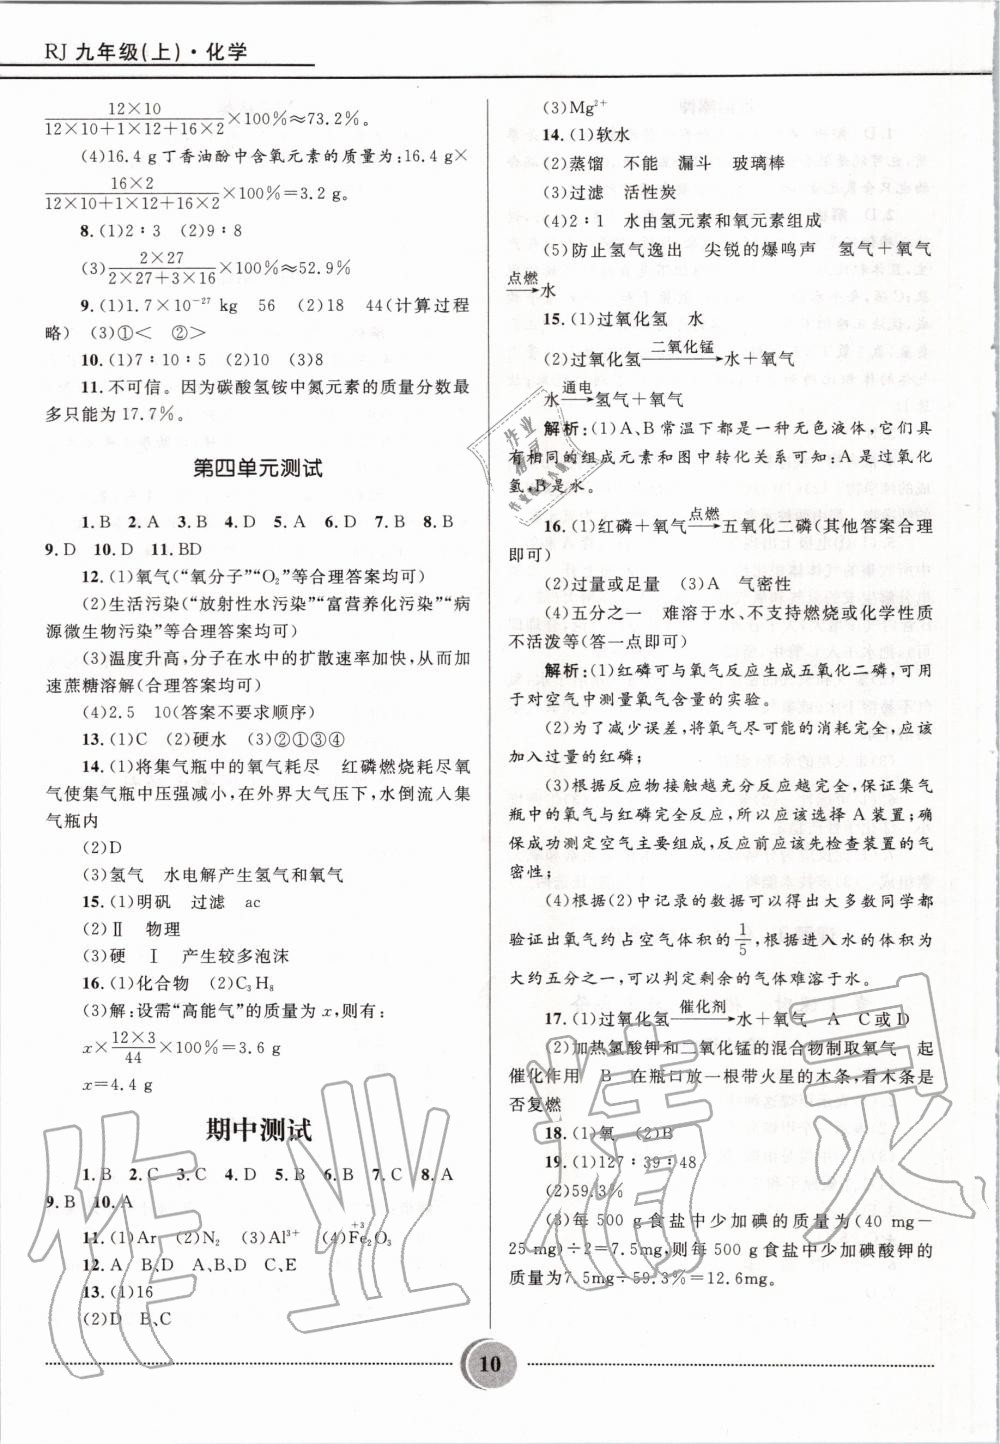 RJ 九年级(上)·化学
12×10
12×10+1×12+16×2 ×100%≈73.2%。
(4)16.4 g丁香油酚中含氧元素的质量为:16.4 g×
16×2
12×10+1×12+16×2 ×100%=3.2 g。
8.(1)2∶3 (2)9∶8
(3) 2×27
2×27+3×16 ×100%≈52.9%
9.(1)1.7×10⁻²⁷ kg 56 (2)18 44(计算过程
略) (3)①< ②>
10.(1)7∶10∶5 (2)10 (3)8
11.不可信。因为碳酸氢铵中氮元素的质量分数最
多只能为17.7%。
第四单元测试
1.B 2.A 3.B 4.D 5.A 6.D 7.B 8.B
9.D 10.D 11.BD
12.(1)氧气(“氧分子”“O₂”等合理答案均可)
(2)生活污染(“放射性水污染”“富营养化污染”“病
源微生物污染”等合理答案均可)
(3)温度升高,分子在水中的扩散速率加快,从而加
速蔗糖溶解(合理答案均可)
(4)2.5 10(答案不要求顺序)
13.(1)C (2)硬水 (3)②①③④
14.(1)将集气瓶中的氧气耗尽 红磷燃烧耗尽氧
气使集气瓶中压强减小,在外界大气压下,水倒流入集
气瓶内
(2)D
(3)氢气 水电解产生氢气和氧气
15.(1)明矾 过滤 ac
(2)Ⅱ 物理
(3)硬 Ⅰ 产生较多泡沫
16.(1)化合物 (2)C₃H₈
(3)解:设需“高能气”的质量为x,则有:
x× 12×3
44 ×100%=3.6 g
x=4.4 g
期中测试
1.B 2.C 3.C 4.D 5.B 6.B 7.C 8.A
9.B 10.A
11.(1)Ar (2)N₂ (3)Al³⁺ (4)
+3
Fe₂O₃
12.A B、D A、B、D C、E
13.(1)16
(2)D B、C
(3)Mg²⁺
14.(1)软水
(2)蒸馏 不能 漏斗 玻璃棒
(3)过滤 活性炭
(4)2∶1 水由氢元素和氧元素组成
(5)防止氢气逸出 尖锐的爆鸣声 氢气+氧气
点燃
→水
15.(1)过氧化氢 水
(2)过氧化氢 二氧化锰→ 水+氧气
水 通电→ 氢气+氧气
解析:(1)A、B常温下都是一种无色液体,它们具
有相同的组成元素和图中转化关系可知:A是过氧化
氢,B是水。
16.(1)红磷+氧气 点燃→ 五氧化二磷(其他答案合理
即可)
(2)过量或足量 (3)A 气密性
(4)五分之一 难溶于水、不支持燃烧或化学性质
不活泼等(答一点即可)
解析:(1)红磷可与氧气反应生成五氧化二磷,可用
于对空气中测量氧气含量的实验。
(2)为了减少误差,将氧气尽可能的消耗完全,应该
加入过量的红磷;
(3)根据反应物接触越充分反应越完全,保证集气
瓶中的氧气与红磷完全反应,所以应该选择A装置;确
保成功测定空气主要组成,反应前应该先检查装置的气
密性;
(4)根据(2)中记录的数据可以得出大多数同学都
验证出氧气约占空气体积的 1
5 ,根据进入水的体积为
大约五分之一,可以判定剩余的气体难溶于水。
17.(1)过氧化氢 催化剂→ 水+氧气 A C或D
(2)加热氯酸钾和二氧化锰的混合物制取氧气 起
催化作用 B 在瓶口放一根带火星的木条,看木条是
否复燃
18.(1)氧 (2)B
19.(1)127∶39∶48
(2)59.3%
(3)每500 g食盐中少加碘的质量为(40 mg-
25 mg)÷2=7.5mg,则每500 g食盐中少加碘酸钾的
质量为7.5mg÷59.3%=12.6mg。
10
作业精灵